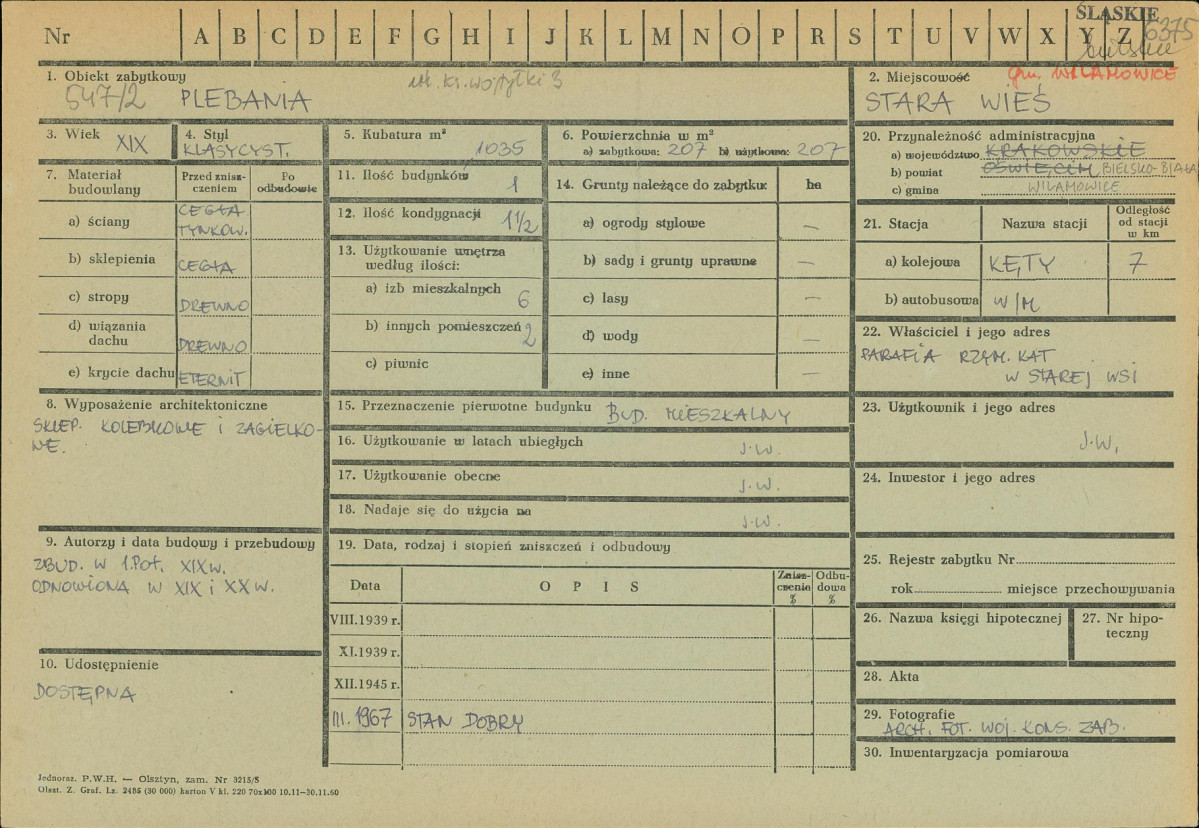 ŚLĄSKIE
6375
Nr A B C D E F G H I J K L M N O P R S T U V W X Y Z
bielskie
1. Obiekt zabytkowy
547/2 PLEBANIA
ul. ks. Wojtyłki 3
2. Miejscowość
gm. WILAMOWICE
STARA WIEŚ
3. Wiek XIX
4. Styl
KLASYCYST.
5. Kubatura m³
1035
6. Powierzchnia w m²
a) zabytkowa: 207 b) użytkowa: 207
20. Przynależność administracyjna
a) województwo KRAKOWSKIE
b) powiat OŚWIĘCIM BIELSKO-BIAŁA
c) gmina WILAMOWICE
7. Materiał budowlany
Przed zniszczeniem
Po odbudowie
a) ściany CEGŁA TYNKOW.
b) sklepienia CEGŁA
c) stropy DREWNO
d) wiązania dachu DREWNO
e) krycie dachu ETERNIT
11. Ilość budynków 1
12. Ilość kondygnacji 1 1/2
13. Użytkowanie wnętrza
według ilości:
a) izb mieszkalnych 6
b) innych pomieszczeń 2
c) piwnic
14. Grunty należące do zabytku: ha
a) ogrody stylowe —
b) sady i grunty uprawne —
c) lasy —
d) wody —
e) inne —
21. Stacja
Nazwa stacji
Odległość od stacji w km
a) kolejowa KĘTY 7
b) autobusowa W/M
22. Właściciel i jego adres
PARAFIA RZYM. KAT
W STAREJ WSI
8. Wyposażenie architektoniczne
SKLEP. KOLEBKOWE I ŻAGIELKO-
WE.
15. Przeznaczenie pierwotne budynku BUD. MIESZKALNY
16. Użytkowanie w latach ubiegłych J.W.
17. Użytkowanie obecne J.W.
18. Nadaje się do użycia na J.W.
23. Użytkownik i jego adres
J.W.
24. Inwestor i jego adres
9. Autorzy i data budowy i przebudowy
ZBUD. W 1.POŁ. XIX W.
ODNOWIONA W XIX i XX W.
19. Data, rodzaj i stopień zniszczeń i odbudowy
Data OPIS Zniszczenia % Odbudowa %
VIII.1939 r.
XI.1939 r.
XII.1945 r.
III.1967 STAN DOBRY
25. Rejestr zabytku Nr
rok miejsce przechowywania
26. Nazwa księgi hipotecznej
27. Nr hipoteczny
10. Udostępnienie
DOSTĘPNA
28. Akta
29. Fotografie
ARCH. FOT. WOJ. KONS. ZAB.
30. Inwentaryzacja pomiarowa
Jednoraz. P.W.H. — Olsztyn, zam. Nr 3215/S
Olszt. Z. Graf. Lz. 2485 (30 000) karton V kl. 220 70x100 10.11—30.11.60